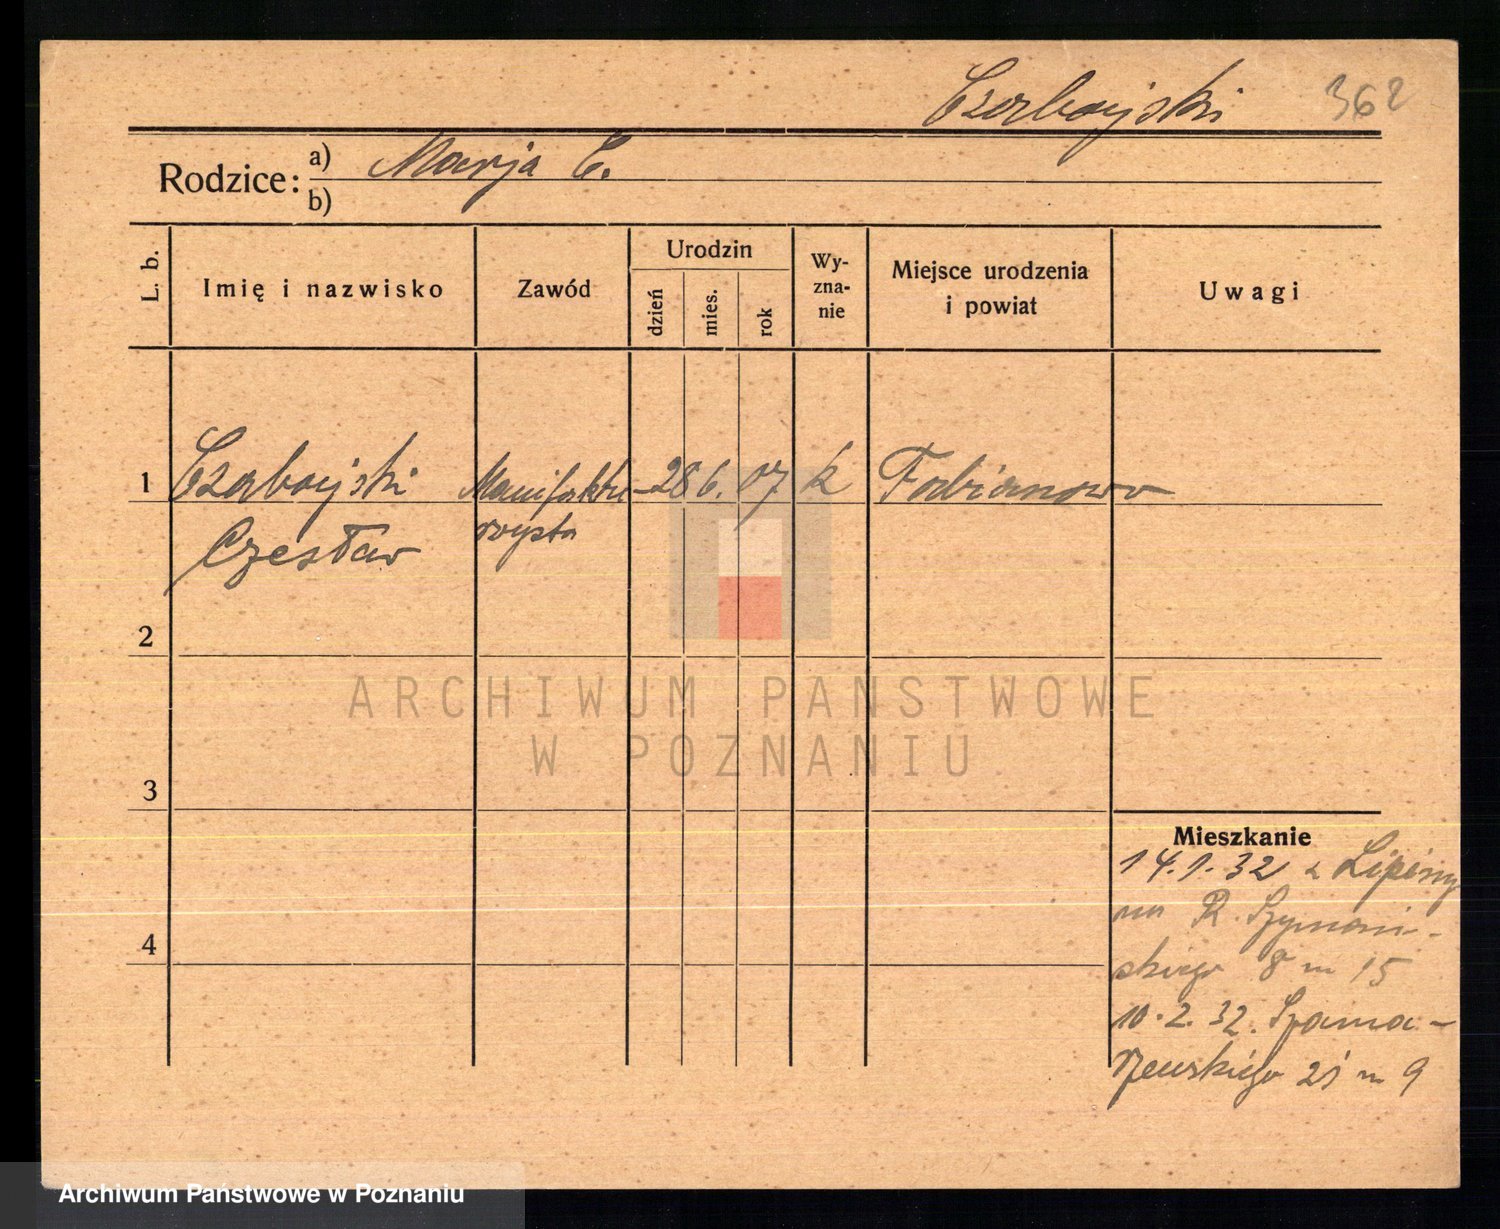 Czarbajski 362
Rodzice: a) Marja C.
b)
L. b.
Imię i nazwisko
Zawód
Urodzin
dzień
mies.
rok
Wy-
zna-
nie
Miejsce urodzenia
i powiat
Uwagi
1 Czarbajski Manifaktu- 28 6. 07 k Fabianowo
Czesław rzysta
2
3
4
Mieszkanie
14.1.32 z Lipiny
na R. Szymań-
skiego 8 m 15
10.2.32. Szama-
rzewskiego 21 m 9
ARCHIWUM PAŃSTWOWE
W POZNANIU
Archiwum Państwowe w Poznaniu